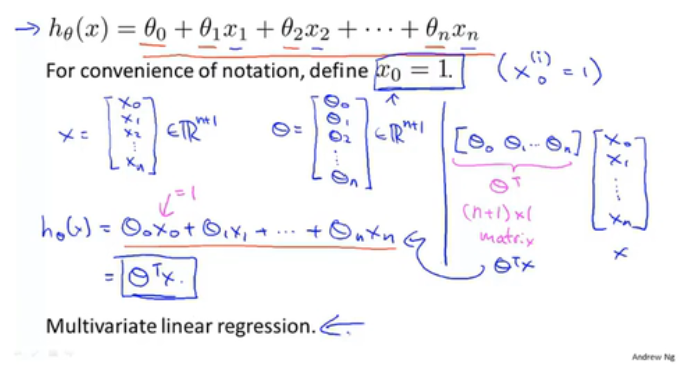 → hθ(x) = θ₀ + θ₁x₁ + θ₂x₂ + ⋯ + θₙxₙ
For convenience of notation, define x₀ = 1. (x₀⁽ⁱ⁾ = 1)
x = [x₀ x₁ x₂ ⋮ xₙ] ∈ ℝⁿ⁺¹ θ = [θ₀ θ₁ θ₂ ⋮ θₙ] ∈ ℝⁿ⁺¹
[θ₀ θ₁ ⋯ θₙ] [x₀ x₁ ⋮ xₙ]
θᵀ
(n+1) × 1
matrix
x
θᵀx
= 1
hθ(x) = θ₀x₀ + θ₁x₁ + ⋯ + θₙxₙ
= θᵀx.
Multivariate linear regression. ←
Andrew Ng